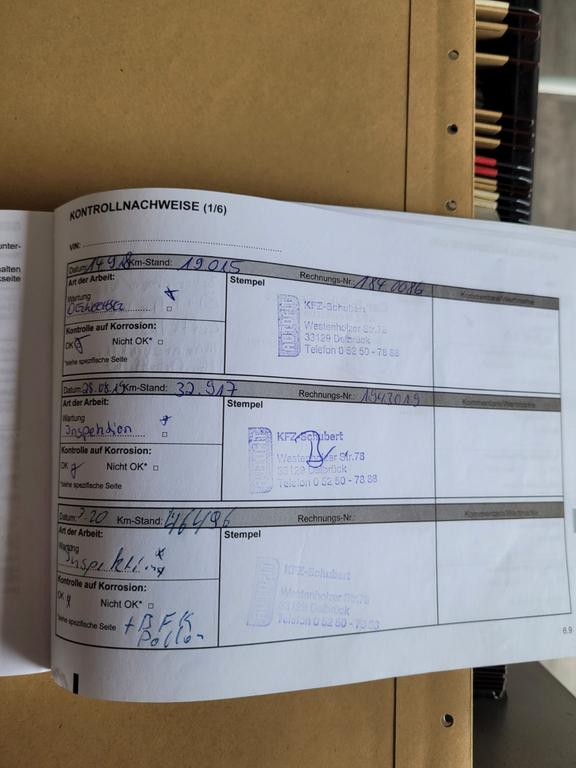 unter-
alten
kseite
KONTROLLNACHWEISE (1/6)
VIN:
Datum: 14.9.18 Km-Stand: 19015 Rechnungs-Nr.: 1840086
Art der Arbeit: Stempel
Wartung
Oelwechsel
Kontrolle auf Korrosion:
OK Nicht OK*
*siehe spezifische Seite
AUTOFIT
KFZ-Schubert
Westenholzer Str.78
33129 Delbrück
Telefon 0 52 50 - 78 88
Datum: 28.08.19 Km-Stand: 32.917 Rechnungs-Nr.: 1943019 Kommentare/Vermerke
Art der Arbeit: Stempel
Wartung
Inspektion
Kontrolle auf Korrosion:
OK Nicht OK*
*siehe spezifische Seite
AUTOFIT
KFZ-Schubert
Westenholzer Str.78
33129 Delbrück
Telefon 0 52 50 - 78 88
Datum: 7.20 Km-Stand: 46496 Rechnungs-Nr.: Kommentare/Vermerke
Art der Arbeit: Stempel
Wartung
Inspektion
Kontrolle auf Korrosion:
OK Nicht OK*
*siehe spezifische Seite + BFK
Pollen
AUTOFIT
KFZ-Schubert
Westenholzer Str.78
33129 Delbrück
Telefon 0 52 50 - 78 88
6.9